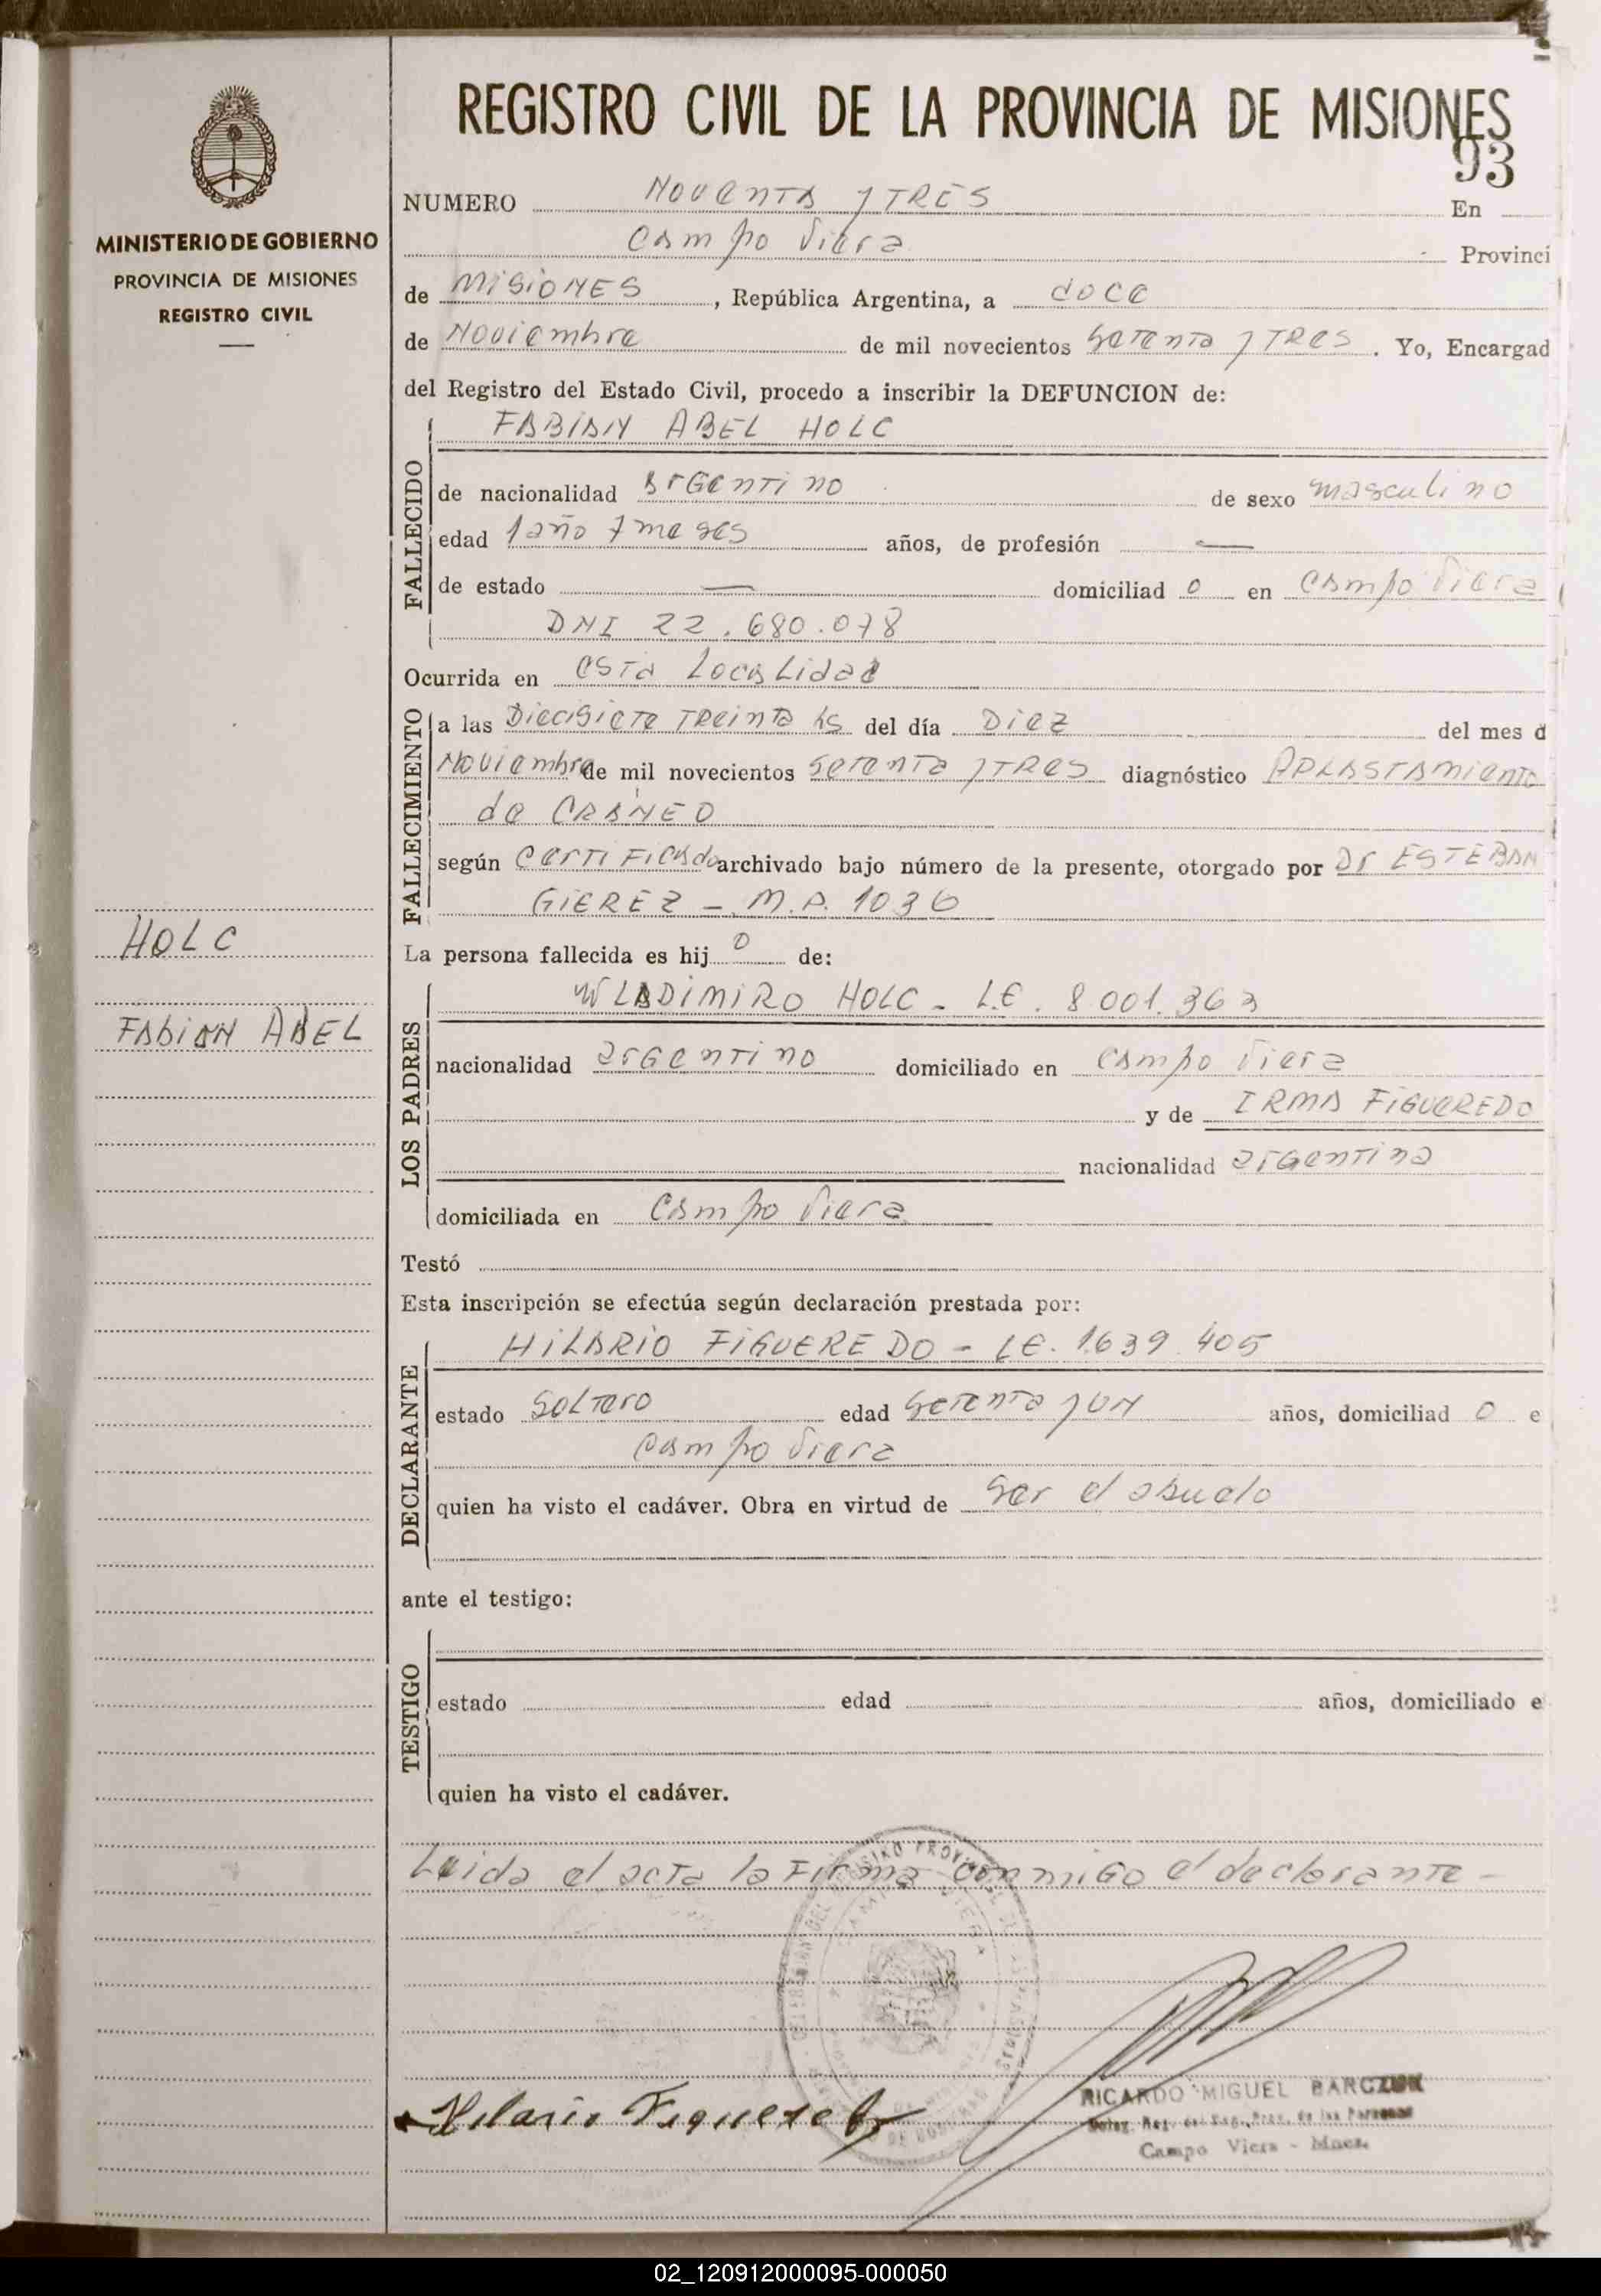 REGISTRO CIVIL DE LA PROVINCIA DE MISIONES
93
MINISTERIO DE GOBIERNO
PROVINCIA DE MISIONES
REGISTRO CIVIL
NUMERO NOVENTA Y TRES En
Campo Viera Provinci
de MISIONES, República Argentina, a doce
de Noviembre de mil novecientos Setenta y TRES. Yo, Encargad
del Registro del Estado Civil, procedo a inscribir la DEFUNCION de:
FALLECIDO
FABIAN ABEL HOLC
de nacionalidad argentino de sexo masculino
edad 1 año 7 meses años, de profesión —
de estado — domiciliad o en Campo Viera
DNI 22.680.078
Ocurrida en esta Localidad
FALLECIMIENTO
a las Diecisiete Treinta hs del día Diez del mes d
Noviembre de mil novecientos setenta y TRES diagnóstico APLASTAMIENTO
de CRANEO
según certificado archivado bajo número de la presente, otorgado por Dr ESTEBAN
GIEREZ - M.P. 1036
HOLC
FABIAN ABEL
La persona fallecida es hij o de:
LOS PADRES
WLADIMIRO HOLC - L.E. 8 001.363
nacionalidad argentino domiciliado en Campo Viera
y de IRMA FIGUEREDO
nacionalidad argentina
domiciliada en Campo Viera
Testó
Esta inscripción se efectúa según declaración prestada por:
DECLARANTE
HILARIO FIGUEREDO - LE. 1639.405
estado Soltero edad Setenta y UN años, domiciliad o e
Campo Viera
quien ha visto el cadáver. Obra en virtud de ser el abuelo
ante el testigo:
TESTIGO
estado edad años, domiciliado e
quien ha visto el cadáver.
Leida el acta la Firma conmigo el declarante -
Hilario Figueredo
RICARDO MIGUEL BARCZUK
Campo Viera - Mnes.
02_120912000095-000050